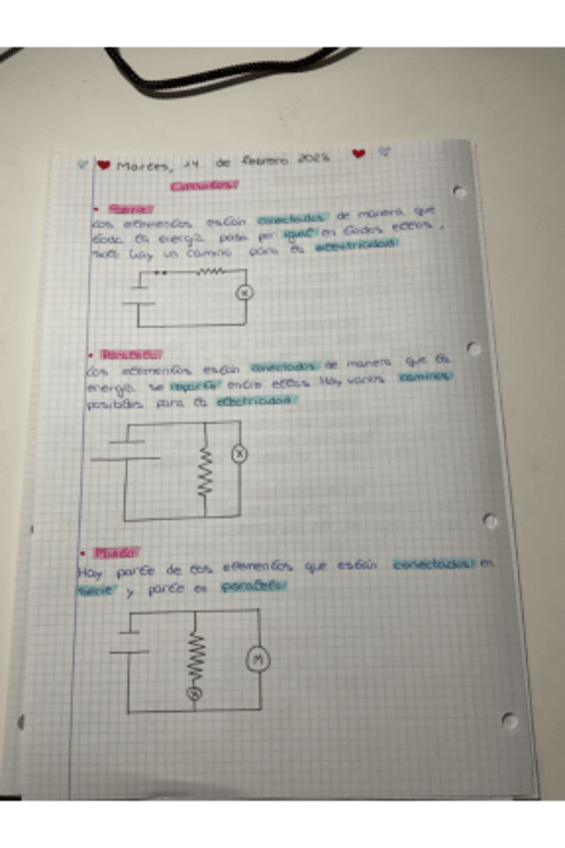 Martes, 14 de febrero 2023
Circuitos
• Serie
Los elementos están conectados de manera que
toda la energía pasa por igual en todos ellos,
solo hay un camino para la electricidad
X
• Paralelo
Los elementos están conectados de manera que la
energía se reparte entre ellos. Hay varios caminos
posibles para la electricidad
X
• Mixto
Hay parte de los elementos que están conectados en
serie y parte en paralelo
M
X